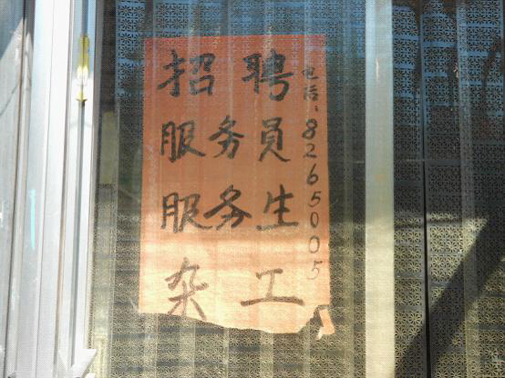 招聘
服务员
服务生
杂工
电话：8265005